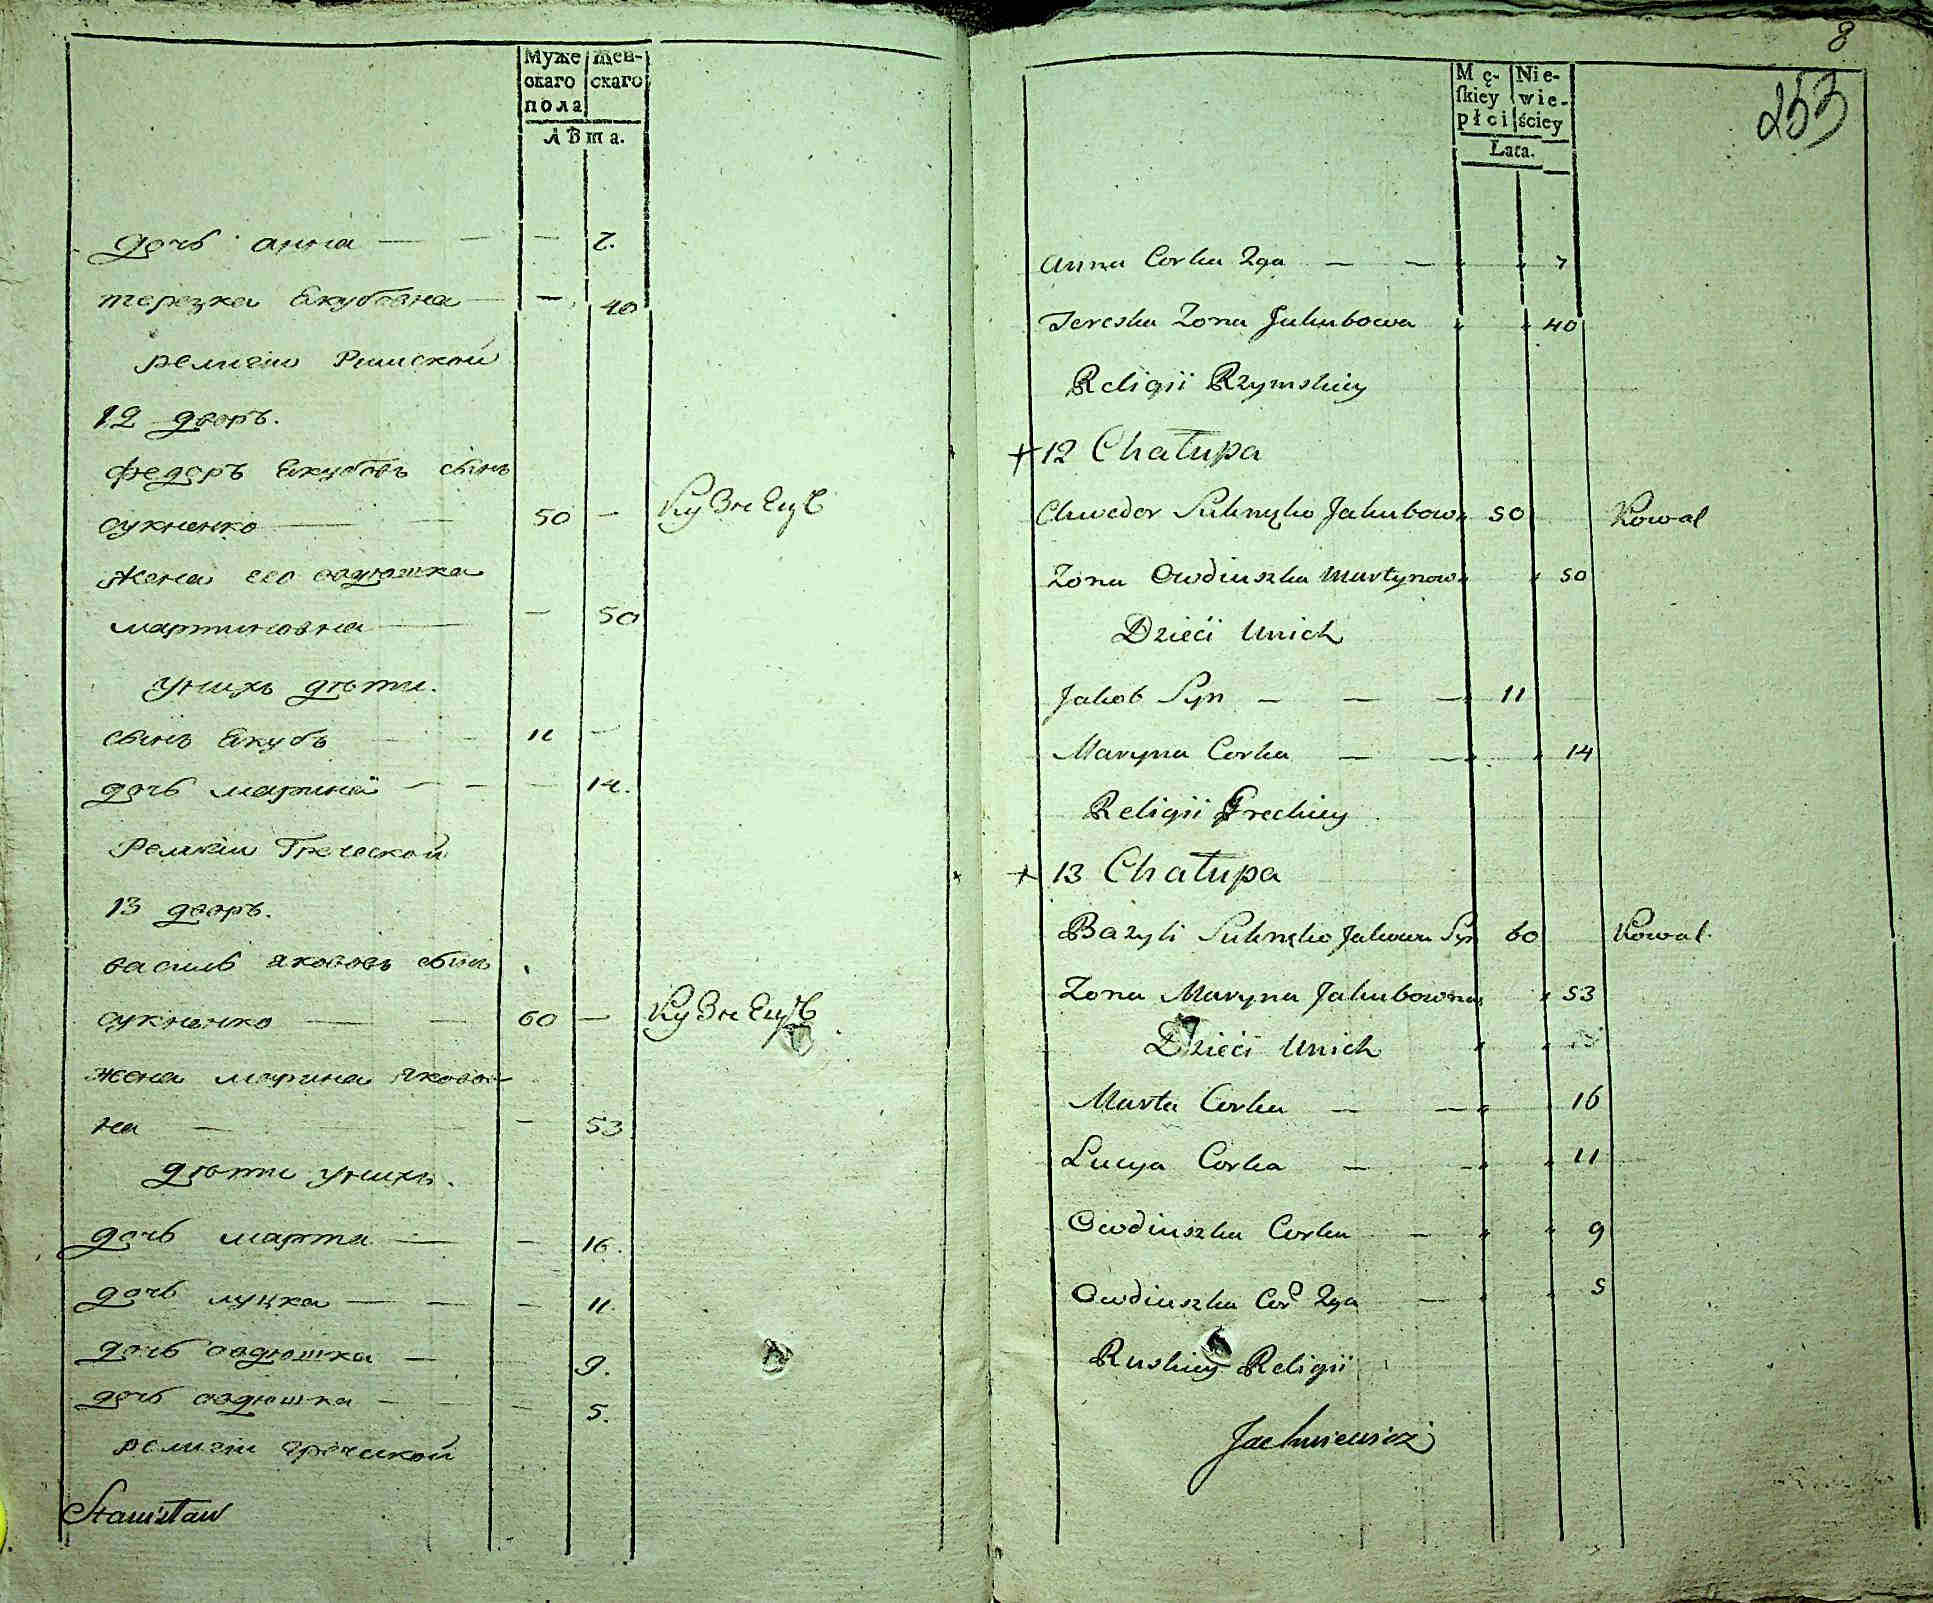 Муже
скаго
пола
жен-
скаго
лѣта.
дочь анна — — — 7.
терезка Якубовна — — 40
религіи Римской
12 дворъ.
Федоръ Якубовъ сынъ
сукненко — — 50 — КуЗнЕцЪ
жена его овдюшка
мартиновна — — 50
унихъ дѣти.
сынъ Якубъ — — 11 —
дочь марина — — — 14.
Религіи Греческой
13 дворъ.
василь якововъ сынъ
сукненко — — 60 — КуЗнЕцЪ
жена марина яковов-
на — — — 53
дѣти унихъ.
дочь марта — — 16.
дочь луцка — — — 11.
дочь овдюшка — 9.
дочь овдюшка — — — 5.
религіи греческой
Stanisław
8
253
Mę-
skiey
płci
Nie-
wie-
ściey
Lata.
Anna Corka 2ga — — " " 7
Tereska Zona Jakubowa " " 40
Religii Rzymskiey
+ 12 Chałupa
Chwedor Suknęko Jakubow " 50 Kowal
Zona Owdiuszka Martynow " " 50
Dzieci Unich
Jakob Syn — — — " 11
Maryna Corka — — " " 14
Religii Greckiey
+ 13 Chałupa
Bazyli Suknęko Jakowu Syn 60 Kowal.
Zona Maryna Jakubowna " 53
Dzieci Unich " "
Marta Corka — — " 16
Lucya Corka — — " " 11
Owdiuszka Corka — " " 9
Owdiuszka Cor 2ga — " " 5
Ruskiey Religii
Jachniewicz